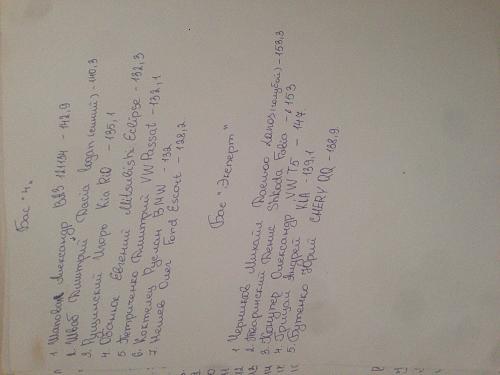 Бас "4"
1 Шаповал Александр ВАЗ 21134 - 142,9
2. Швб Дмитрий Dacia Logan (синий) - 140,3
3. Пушинский Игорь Kia Rio - 135,1
4. Евгений Mitsubishi Eclipse - 132,3
5 Петриченко Дмитрий VW Passat - 132,1
6. Коктелец Руслан BMW - 132
7 Нешев Олег Ford Escort - 128,2
Бас "Эксперт"
1 Черников Михаил Daewoo Lanos (голубой) - 158,3
2. Денис Shkoda Fabia - 153
3. Александр VW T5 - 147
4. Грицай Андрей KIA - 139,1
5. Бутенко Юрий CHERY QQ - 138,9